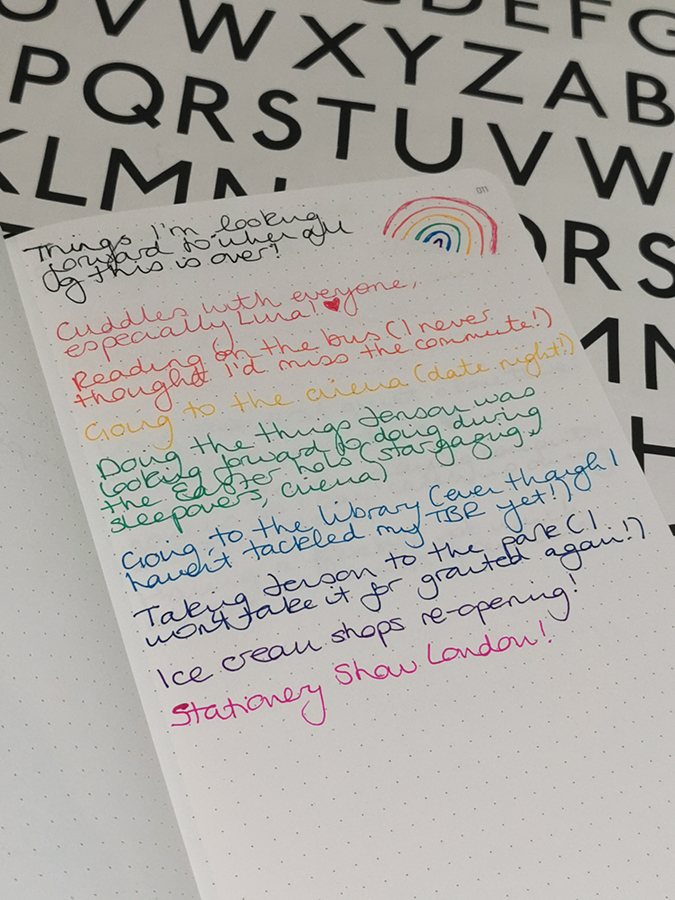 UVWXYZABCDEFG
PQRSTUVW
XYZAB
KLMN
QRS
MN
H
011
Things I'm looking
forward to when all
of this is over!
Cuddles with everyone,
especially Luna!
Reading on the bus (I never
thought I'd miss the commute!)
Going to the cinema (date night!)
Doing the things Jenson was
looking forward to doing during
the Easter hols (stargazing,
sleepovers, cinema)
Going to the library (even though I
haven't tackled my TBR yet!)
Taking Jenson to the park (I
won't take it for granted again!)
Ice cream shops re-opening!
Stationery Show London!